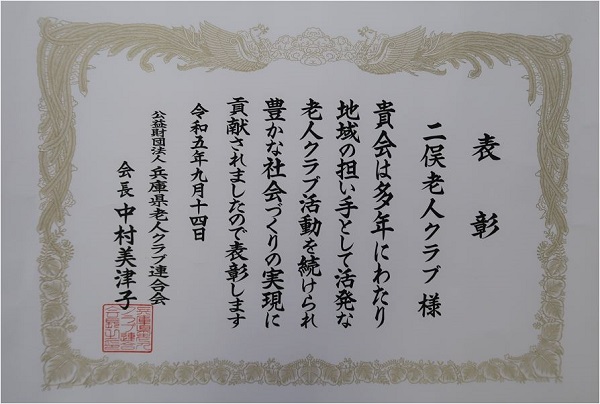 表彰
二俣老人クラブ様
貴会は多年にわたり
地域の担い手として活発な
老人クラブ活動を続けられ
豊かな社会づくりの実現に
貢献されましたので表彰します
令和五年九月十四日
公益財団法人 兵庫県老人クラブ連合会
会長 中村美津子